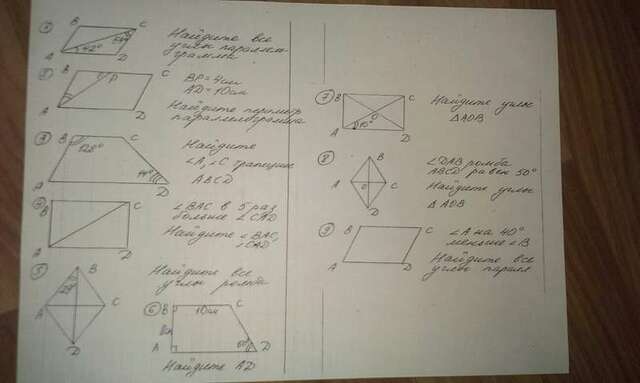 ① B C
A 42° D
Найдите все
углы паралле-
грамма
② B P C
A D
BP = 4см
AD = 10см
Найдите периметр
параллелограмма
③ B C
128°
A D
Найдите
∠A, ∠C трапеции
ABCD
④ B C
A D
∠BAC в 5 раз
больше ∠CAD
Найдите ∠BAC,
∠CAD
⑤ B
A C
D
Найдите все
углы ромба
⑥ B 10см C
A D
Найдите AD
⑦ B C
O
A D
Найдите углы
ΔAOB
⑧ B
A O C
D
∠DAB ромба
ABCD равен 50°
Найдите углы
ΔAOB
⑨ B C
A D
∠A на 40°
меньше ∠B
Найдите все
углы паралл